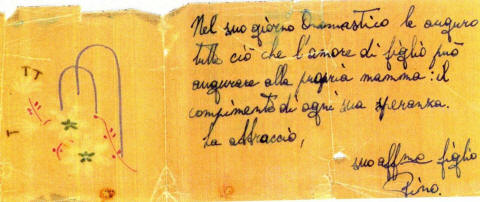 TT
T
Nel suo giorno Onomastico le auguro
tutto ciò che l'amore di figlio può
augurare alla propria mamma: il
compimento di ogni sua speranza.
La abbraccio,
suo affmo figlio
Pino.